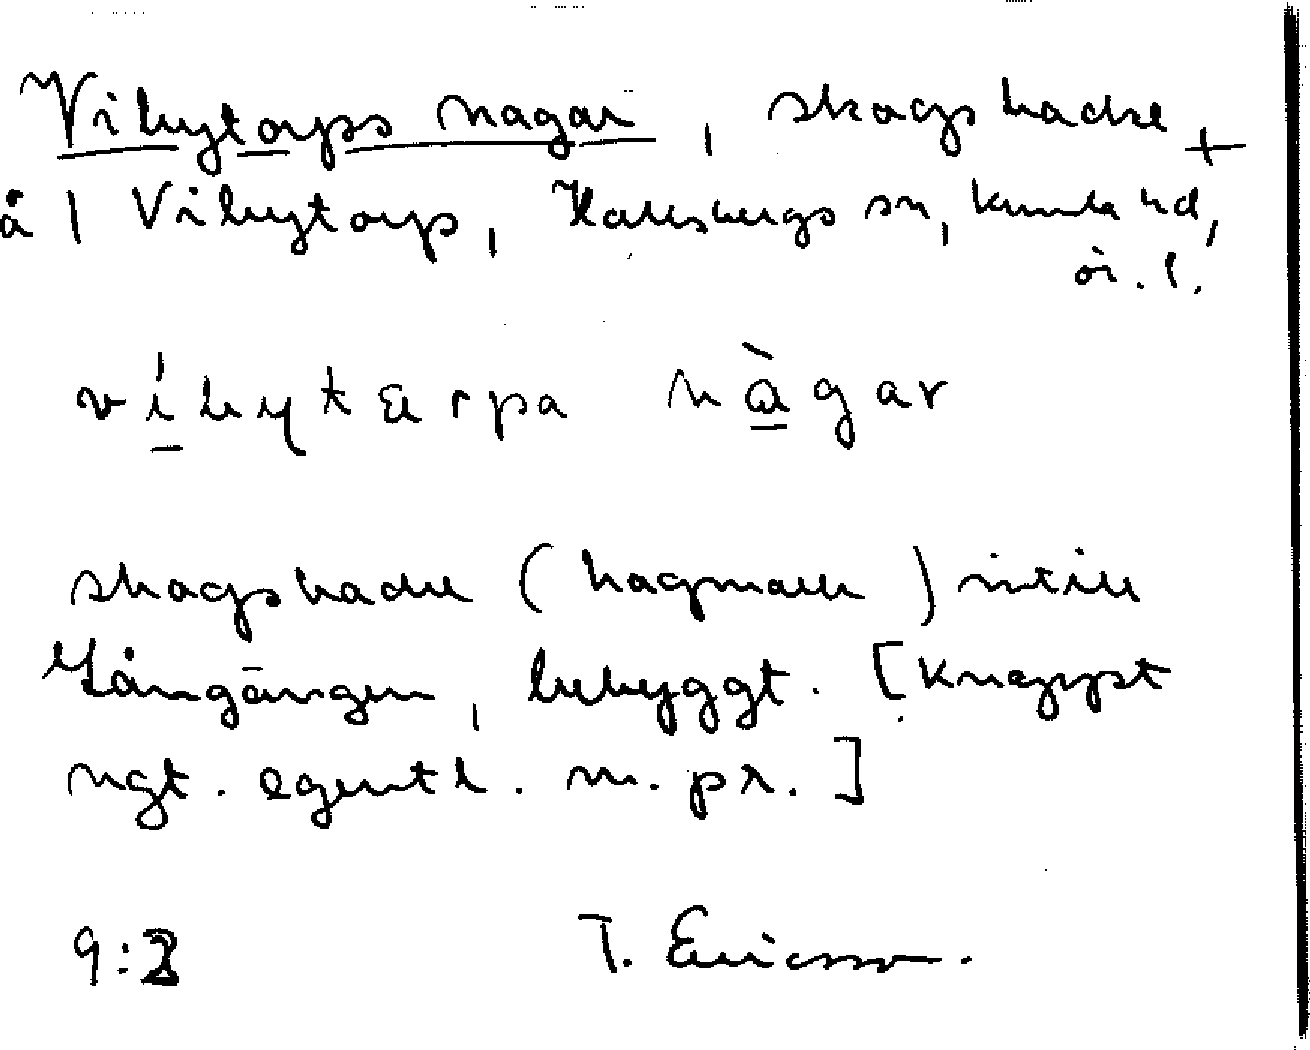 Vibytorps nagar, skogsbacke +
å | Vibytorp, Hallsbergs sn, Kumla hd,
ör. l.
vibytarpa nàgar
skogsbacke (hagmark) intill
Långängen, bebyggt. [Knappt
ngt. egentl. n. pr.]
9:2
T. Ericsson.